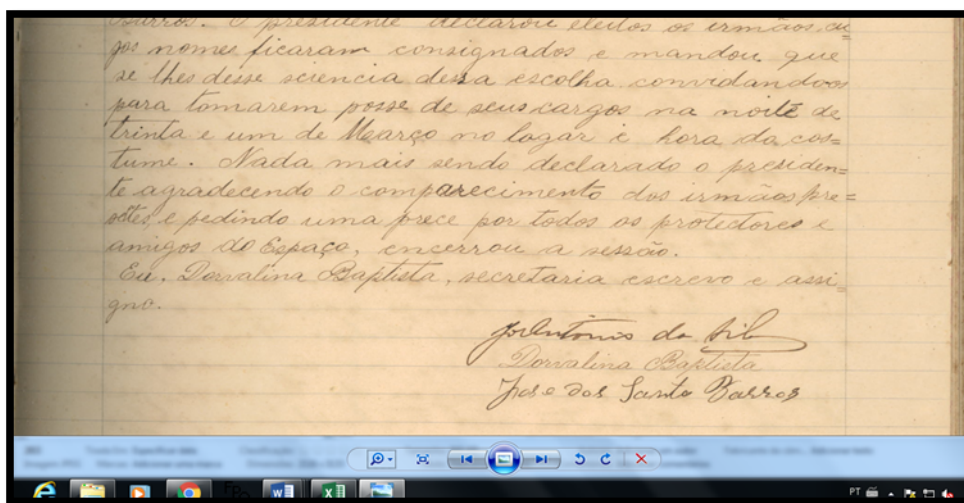 Barros. O presidente declarou eleitos os irmãos cu
jos nomes ficaram consignados e mandou que
se lhes desse sciencia dessa escolha convidandoos
para tomarem posse de seus cargos na noite de
trinta e um de Março no logar e hora da cos=
tume. Nada mais sendo declarado o presiden=
te agradecendo o comparecimento dos irmãos pre=
e pedindo uma prece por todos os protectores e
amigos do Espaço, encerrou a sessão.
Eu, Dorvalina Baptista, secretaria escrevo e assi=
gno.
Antonio da Silv
Dorvalina Baptista
Jose dos Santo Barros
PT